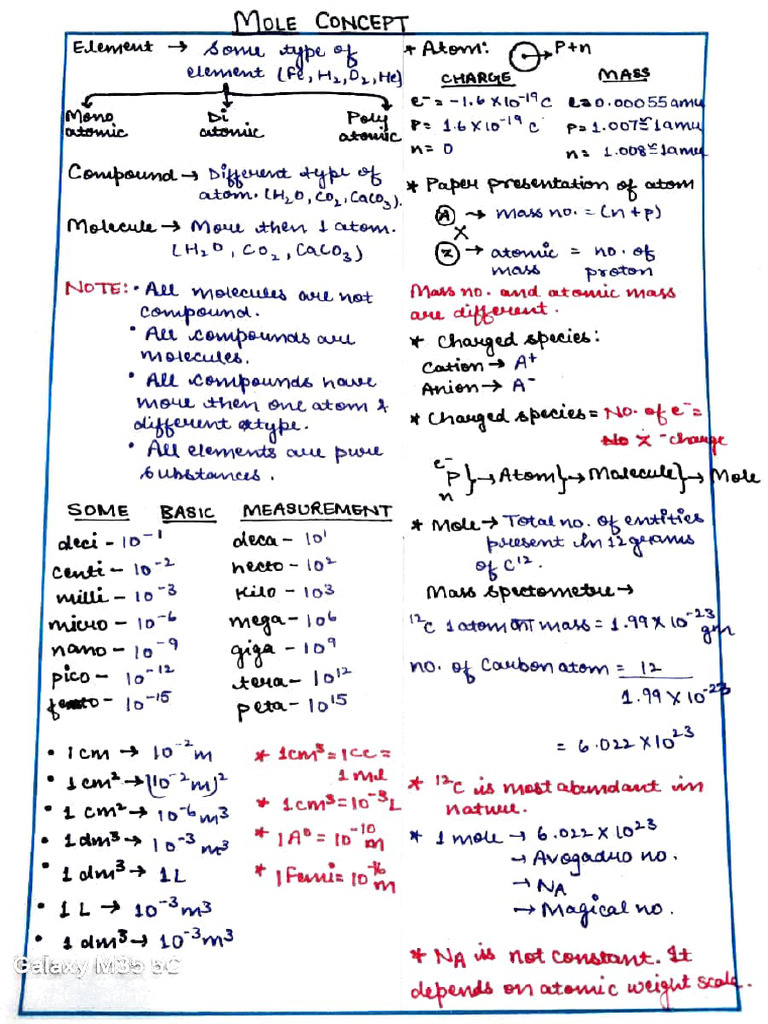 MOLE CONCEPT
Element → Some type of
element (Fe, H₂, O₂, He)
Mono atomic
Di atomic
Poly atomic
Compound → Different type of
atom. (H₂O, CO₂, CaCO₃).
Molecule → More then 1 atom.
(H₂O, CO₂, CaCO₃)
NOTE: • All molecules are not
compound.
• All compounds are
molecules.
• All compounds have
more then one atom &
different type.
• All elements are pure
substances.
SOME BASIC MEASUREMENT
deci - 10⁻¹ deca - 10¹
centi - 10⁻² hecto - 10²
milli - 10⁻³ kilo - 10³
micro - 10⁻⁶ mega - 10⁶
nano - 10⁻⁹ giga - 10⁹
pico - 10⁻¹² tera - 10¹²
femto - 10⁻¹⁵ peta - 10¹⁵
• 1 cm → 10⁻² m
• 1 cm² → (10⁻² m)²
• 1 cm² → 10⁻⁶ m³
• 1 dm³ → 10⁻³ m³
• 1 dm³ → 1L
• 1 L → 10⁻³ m³
• 1 dm³ → 10⁻³ m³
* 1cm³ = 1cc =
1 ml
* 1cm³ = 10⁻³ L
* 1A° = 10⁻¹⁰ m
* 1 Femi = m
* Atom: → P+n
CHARGE MASS
e⁻ = -1.6 × 10⁻¹⁹ C e = 0.00055 amu
P = 1.6 × 10⁻¹⁹ C P = 1.007 ≃ 1amu
n = 0 n = 1.008 ≃ 1amu
* Paper presentation of atom
A → mass no. = (n+p)
X
Z → atomic = no. of
mass proton
Mass no. and atomic mass
are different.
* Charged species:
Cation → A⁺
Anion → A⁻
* Charged species = No. of e⁻ =
No Z - charge
e⁻
P } → Atom } → Molecule } → Mole
n
* Mole → Total no. of entities
present in 12 grams
of C¹².
Mass spectometre →
¹²C 1 atom mass = 1.99 × 10⁻²³ gm
no. of Carbon atom = 12
1.99 × 10⁻²³
= 6.022 × 10²³
* ¹²C is most abundant in
nature.
* 1 mole → 6.022 × 10²³
→ Avogadro no.
→ NA
→ Magical no.
* NA is not constant. It
depends on atomic weight scale.
Galaxy M35 5G